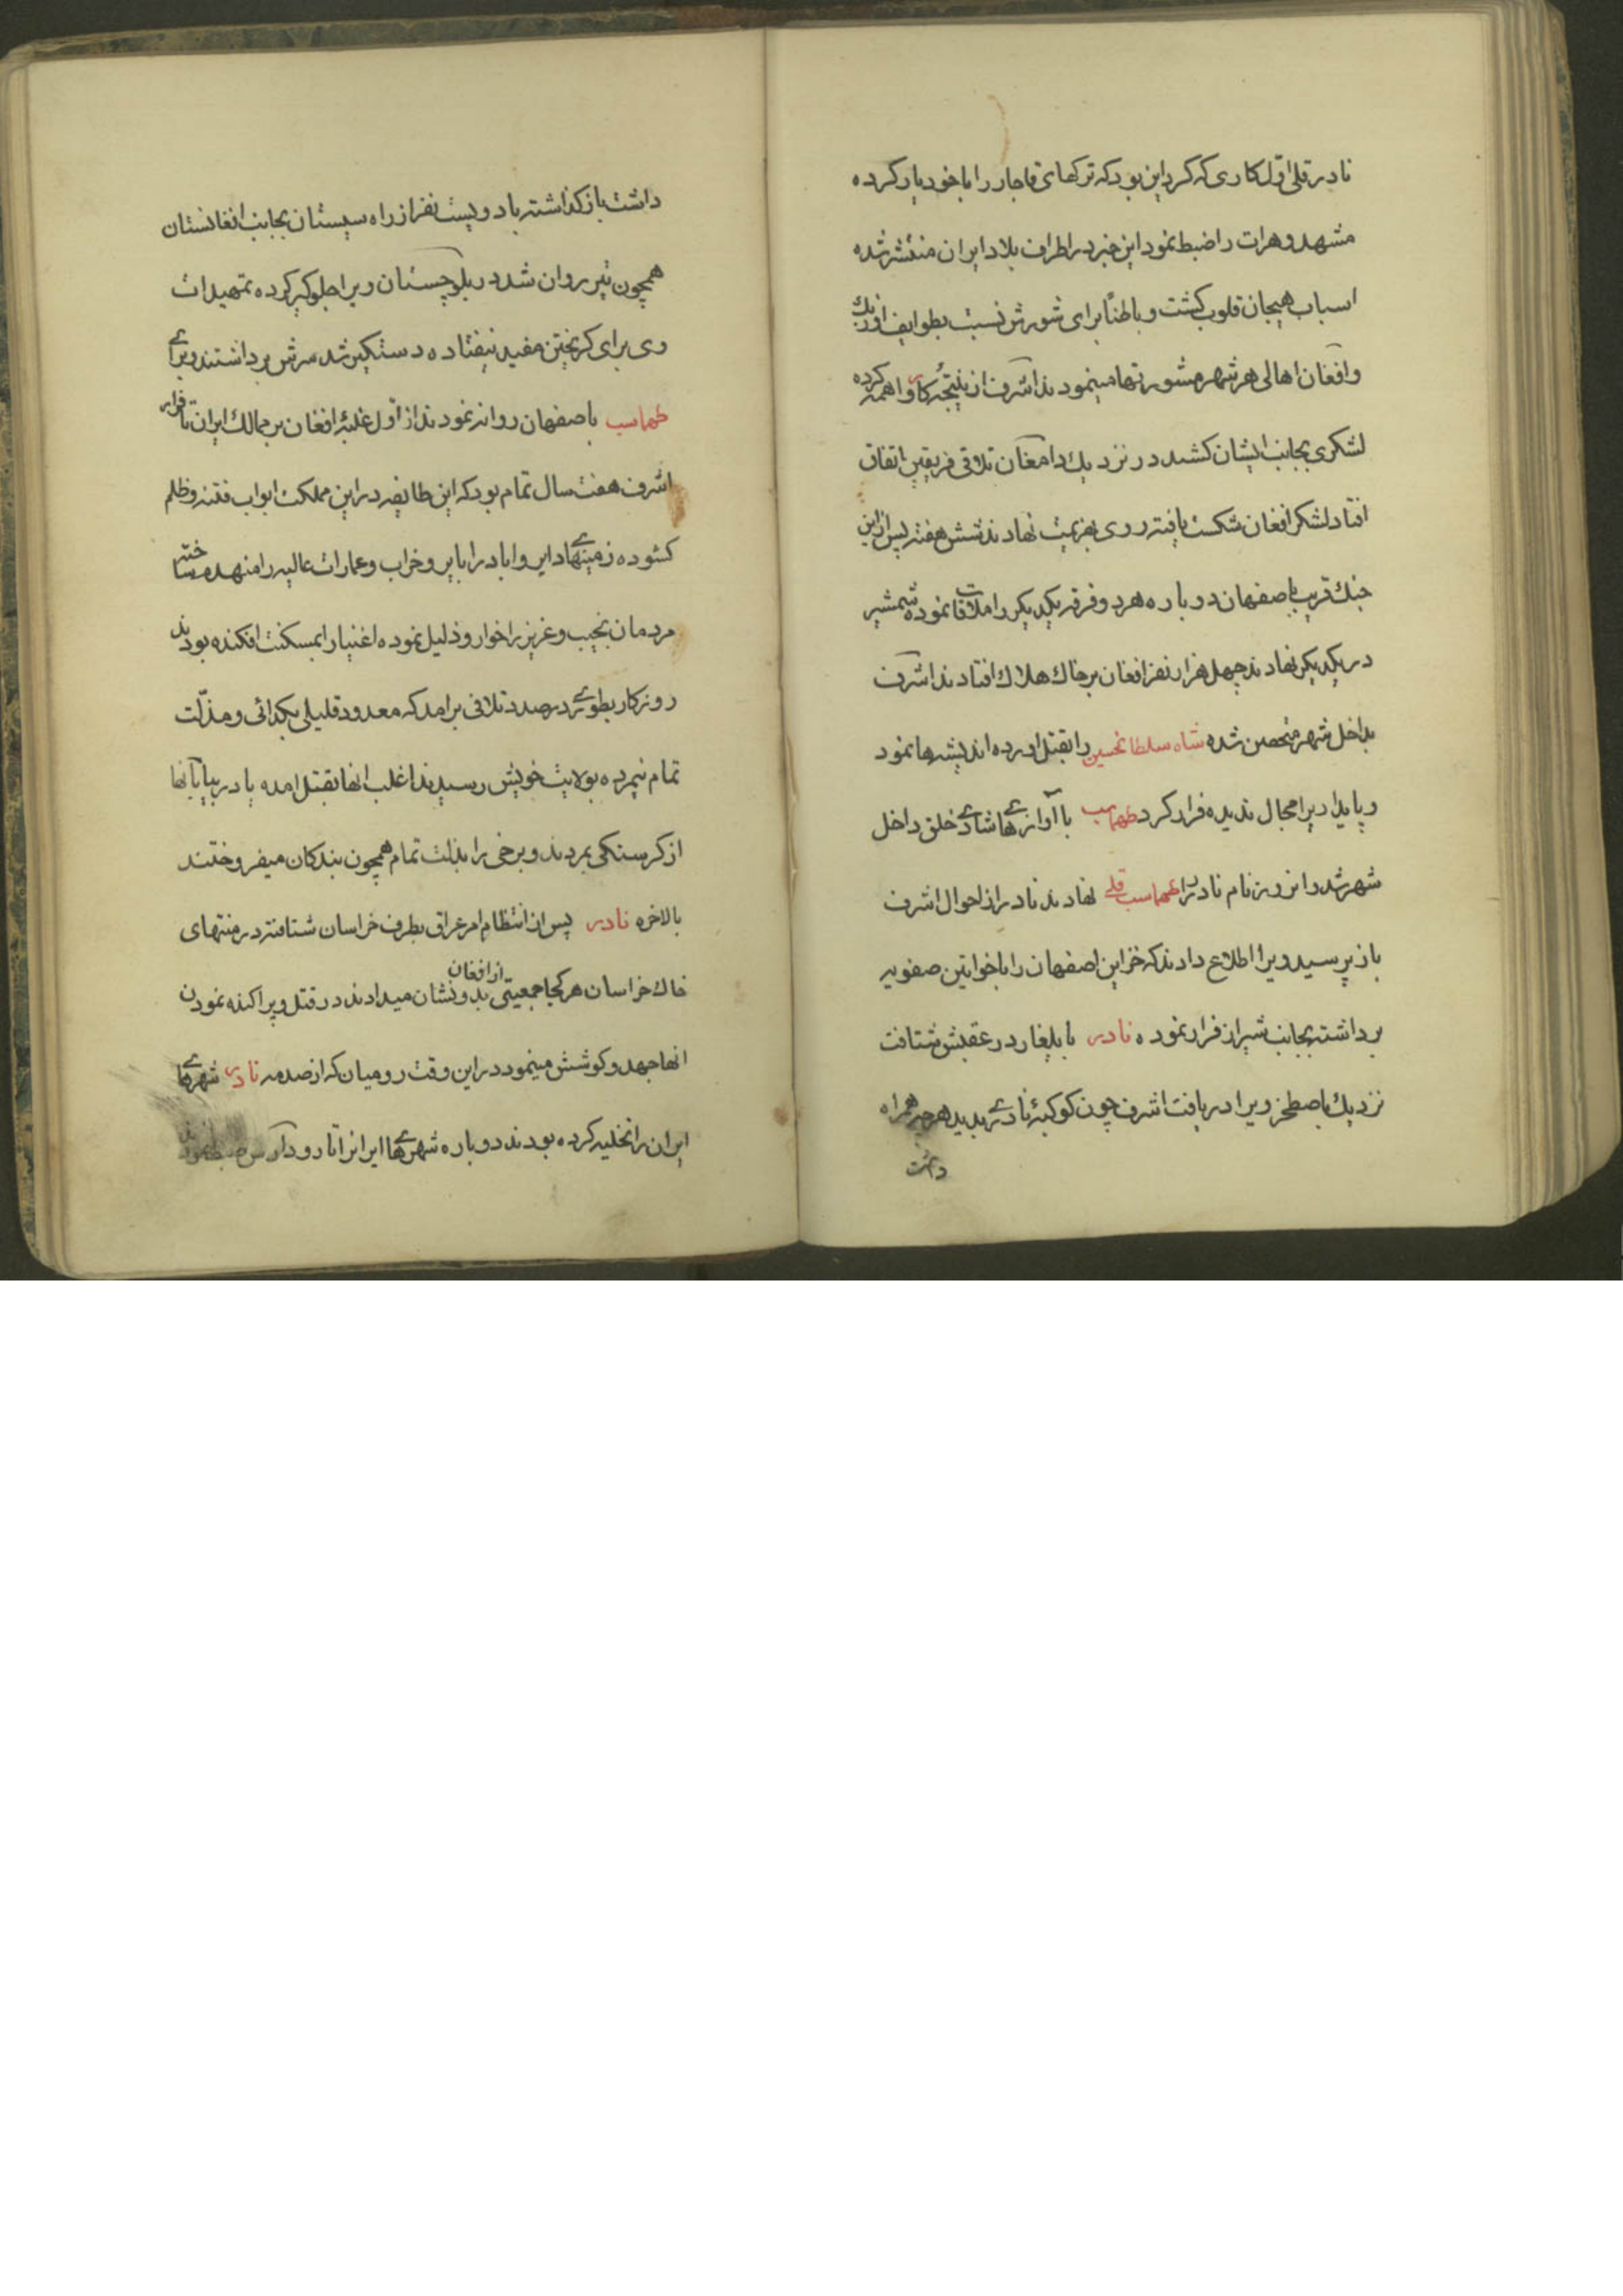 نادر قلی اوّل کاری که کرد این بود که ترکهای قاجار را با خود یار کرده
مشهد و هرات را ضبط نمود این خبر در اطراف بلاد ایران منتشر شده
اسباب هیجان قلوب کشت و باطناً برای شورش نسبت بطوایف اوزبك
و افغان اهالی هر شهر مشورتها مینمودند اشرف از نتیجۀ کار واهمه کرده
لشکری بجانب ایشان کشید در نزدیك دامغان تلاقی فریقین اتفاق
افتاد لشکر افغان شکست یافته روی بهزیمت نهادند شش هفته پس از این
جنك قریب باصفهان دوباره هر دو فرقه یکدیکر را ملاقات نموده شمشیر
در یکدیکر نهادند چهل هزار نفر افغان بر خاك هلاك افتادند اشرف
بداخل شهر متحصن شده شاه سلطانحسین را بقتل اورده اندیشها نمود
و پایداریرا مجال ندیده فرار کرد طهماسب با آوازهای شادی خلق داخل
شهر شد و انروز نام نادر را طهماسب قلی نهادند نادر از احوال اشرف
باز پرسید ویرا اطلاع دادند که خزاین اصفهان را با خواتین صفویه
برداشته بجانب شیراز فرار نموده نادر با یلغار در عقبش شتافت
نزدیك باصطخر ویرا دریافت اشرف چون کوکبۀ نادری بدید هرچه همراه
داشت
داشت باز کذاشته با دویست نفر از راه سیستان بجانب افغانستان
همچون تیر روان شد در بلوچستان ویرا جلوکیر کرده تمهیدات
وی برای کریختن مفید نیفتاده دستکیر شد سرش برداشتند و برای
طهماسب باصفهان روانه نمودند از اوّل غلبۀ افغان بر ممالك ایران تا فرار
اشرف هفت سال تمام بود که این طایفه در این مملکت ابواب فتنه و ظلم
کشوده زمینهای دایر و اباد را بایر و خراب و عمارات عالیه را منهدم ساخته
مردمان نجیب و عزیز را خوار و ذلیل نموده اغنیا را بمسکنت افکنده بودند
روزکار بطوری در صدد تلافی برامد که معدود قلیلی بکدائی و مذلّت
تمام نیمرده بولایت خویش رسیدند اغلب انها بقتل امده یا در بیابانها
از کرسنکی بمردند و برخی را بذلت تمام همچون بندکان میفروختند
بالاخره نادر پس از انتظام امر عراق بطرف خراسان شتافته در منتهای
خاك خراسان هر کجا جمعیتی از افغان بدو نشان میدادند در قتل و پراکنده نمودن
انها جهد و کوشش مینمود در این وقت رومیان که از صدمه نادر شهرهای
ایران را تخلیه کرده بودند دوباره شهرهای ایرانرا تا رود آرس ضبط نمودند